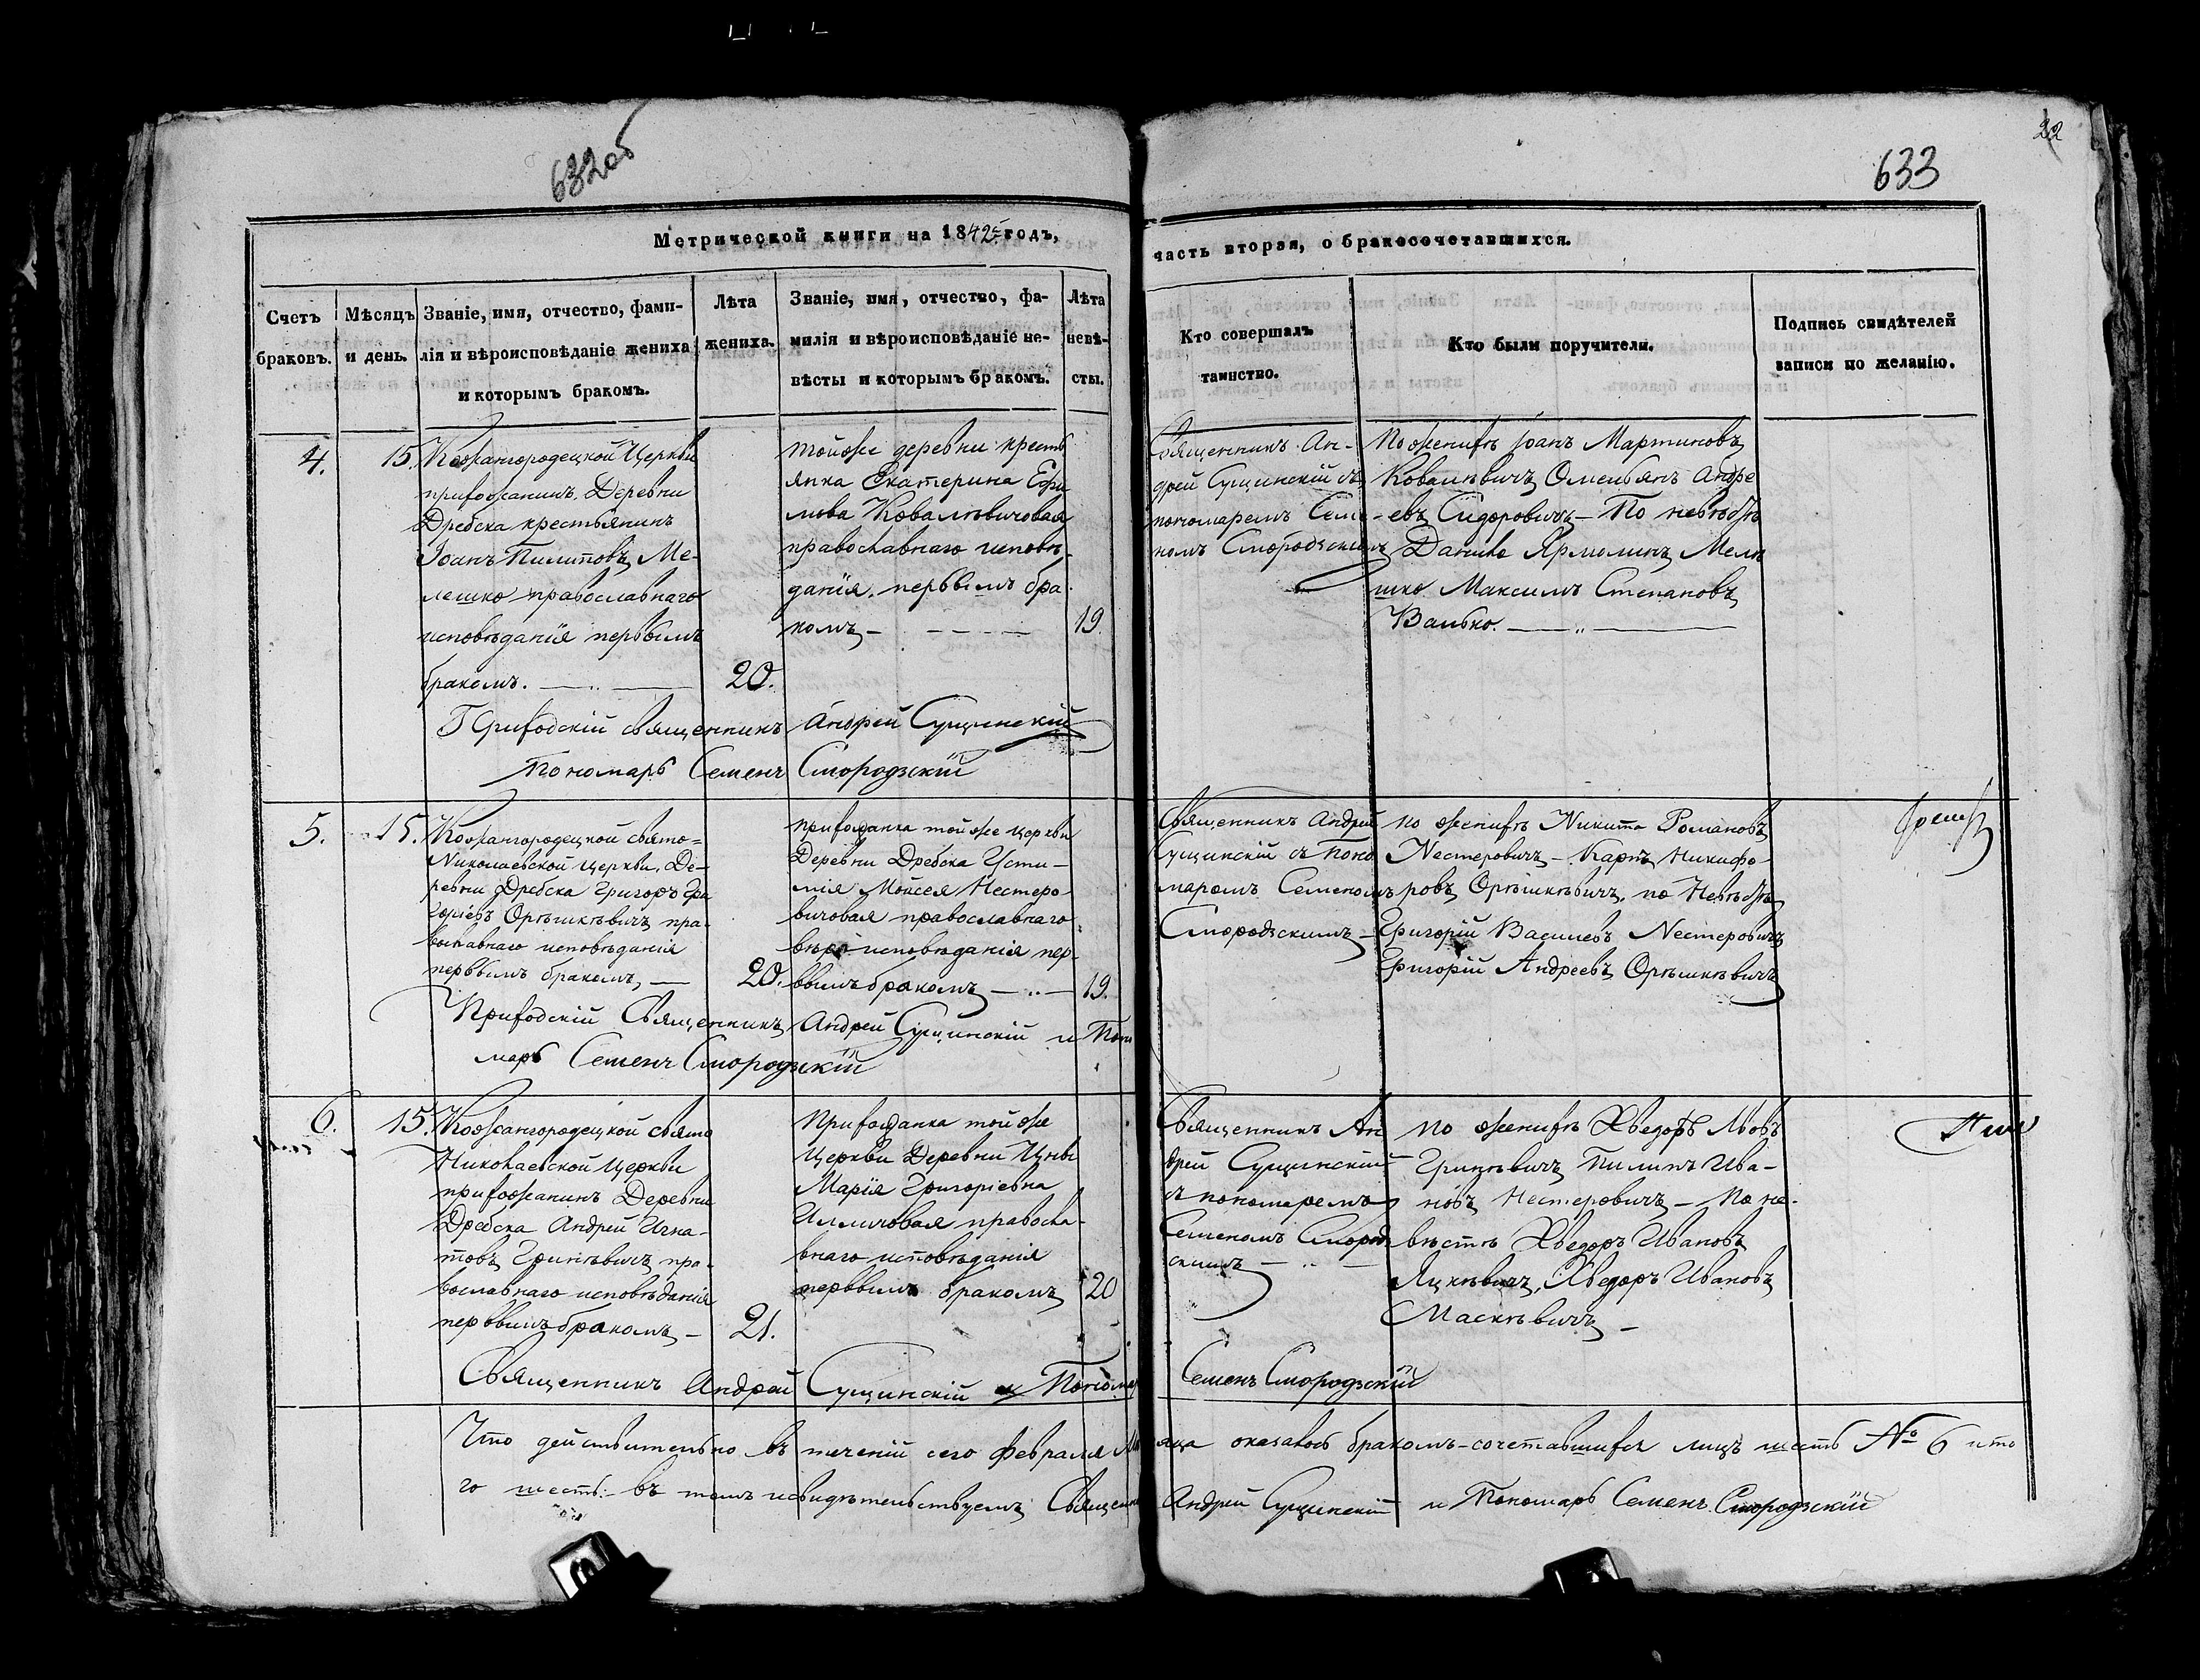 632об
633
22
Метрической книги на 1842й годъ,
часть вторая, о бракосочетавшихся.
Счетъ
браковъ.
Мѣсяцъ
и день.
Званіе, имя, отчество, фами-
лія и вѣроисповѣданіе жениха
и которымъ бракомъ.
Лѣта
жениха.
Званіе, имя, отчество, фа-
милія и вѣроисповѣданіе не-
вѣсты и которымъ бракомъ.
Лѣта
невѣ-
сты.
Кто совершалъ
таинство.
Кто были поручители.
Подпись свидѣтелей
записи по желанію.
4.
15.
Кожангородецкой Церкви
прихожанинъ Деревни
Дребска крестьянинъ
Іоанъ Пилиповъ Ме-
лешко православнаго
исповѣданія первымъ
бракомъ.
20.
тойже деревни кресть
янка Екатерина Ефи
мова Ковалѣвичовая
православнаго исповѣ-
данія. первымъ бра
комъ
19.
Священникъ Ан-
дрей Сущинскій съ
пономаремъ Семе-
номъ Смородзскимъ
По женихѣ Іоанъ Мартиновъ
Ковалѣвичъ Омельянъ Андре
евъ Сидоровичъ - По невѣстѣ
Данило Ярмолинъ Меле
шко Максимъ Степановъ
Валько.
Приходскій священникъ Андрей Сущинскій
Пономарь Семенъ Смородзскій
5.
15.
Кожангородецкой свято=
Николаевской церкви, Де-
ревни Дребска Григоръ Гри
горіевъ Орѣшкѣвичъ пра-
вославнаго исповѣданія
первымъ бракомъ,
20.
прихожанка той же церкви
Деревни Дребска Усти-
нія Мойсея Нестеро
вичовая православнаго
вѣро исповѣданія пер-
вымъ бракомъ
19.
Священникъ Андрей
Сущинскій съ Поно
маромъ Семеномъ
Смородзскимъ
по женихѣ Никита Романовъ
Нестеровичъ - Карпъ Никифо
ровъ Орѣшкѣвичъ, по Невѣстѣ
Григорій Василевъ Нестеровичъ
Григорій Андреевъ Орѣшкѣвичъ
Приходскій Священникъ Андрей Сущинскій и Поно
марь Семенъ Смородзскій
6.
15.
Кожангородецкой свято
Николаевской Церкви
прихожанинъ Деревни
Дребска Андрей Игна-
товъ Гринѣвичъ пра-
вославнаго исповѣданія
первымъ бракомъ
21.
Прихожанка той же
Церкви Деревни Цны
Марія Григоріевна
православ
внаго исповѣданія
первымъ бракомъ
20
Священникъ Ан
дрей Сущинскій
съ пономаремъ
Семеномъ Смород
скимъ
по женихѣ Хведоръ Львовъ
Гринѣвичъ Пилипъ Ива-
новъ Нестеровичъ - По не-
вѣстѣ Хведоръ Ивановъ
Яцкѣвичъ, Хведоръ Ивановъ
Маскѣвичъ
Священникъ Андрей Сущинскій и Пономарь Семенъ Смородзскій
Что действительно въ теченій сего февраля Мѣсяца оказалось бракомъ-сочетавшихся лицъ шесть № 6 ито
го шесть. въ томъ и свидѣтельствуемъ Священникъ Андрей Сущинскій и Пономарь Семенъ Смородзскій